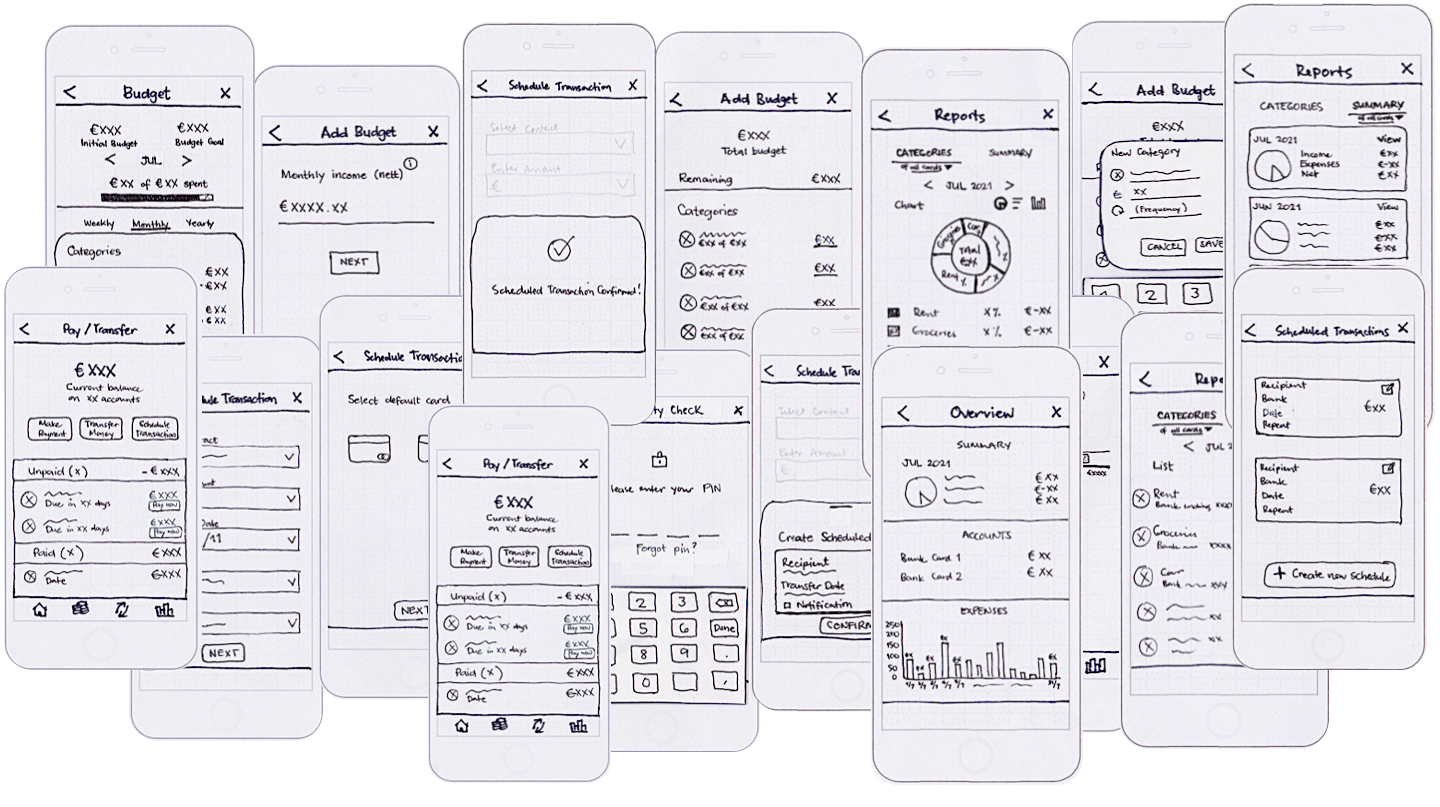 < Budget X
€XXX €XXX
Initial Budget Budget Goal
< JUL >
€XX of €XX spent
Weekly Monthly Yearly
Categories
€XX
-€XX
€XX
-€XX
< Add Budget X
Monthly income (nett) i
€XXXX.XX
NEXT
< Schedule Transaction X
Select Contact
Enter Amount
€
Scheduled Transaction Confirmed!
< Add Budget X
€XXX
Total budget
Remaining €XXX
Categories
€XX of €XX €XX
€XX of €XX €XX
€XX of €XX €XX
€XX of €XX
< Reports X
CATEGORIES SUMMARY
of all cards ▼
< JUL 2021 >
Chart
Groceries Car
TOTAL
€XX
Rent %
Rent X% €-XX
Groceries X% €-XX
< Add Budget
€XXX
New Category
€ XX
(Frequency)
CANCEL SAVE
1 2 3
< Reports X
CATEGORIES SUMMARY
of all cards ▼
JUL 2021 View
Income €XX
Expenses €-XX
Net €XX
JUN 2021 View
€XX
€-XX
€XX
< Pay / Transfer X
€XXX
Current balance
on XX accounts
Make Payment
Transfer Money
Schedule Transaction
Unpaid (x) -€XXX
Due in XX days €XXX
Pay now
Due in XX days €XXX
Pay now
Paid (x) €XXX
Date €XXX
ule Transaction X
tact
unt
Date
/11
NEXT
< Schedule Transactio
Select default card
NEXT
< Pay / Transfer X
€XXX
Current balance
on XX accounts
Make Payment
Transfer Money
Schedule Transaction
Unpaid (x) -€XXX
Due in XX days €XXX
Pay now
Due in XX days €XXX
Pay now
Paid (x) €XXX
Date €XXX
ty Check X
lease enter your PIN
Forgot pin?
2 3
5 6 Done
8 9 .
0 ,
< Schedule Tra
Select Contact
Enter Amount
€
Create Scheduled
Recipient
Transfer Date
Notification
CONFIRM
< Overview X
SUMMARY
JUL 2021
€XX
€-XX
€XX
ACCOUNTS
Bank Card 1 €XX
Bank Card 2 €XX
EXPENSES
250
200
150
100
50
0
X
< Repo
CATEGORIES
of all cards ▼
< JUL 2
List
Rent
Bank ending XXXX
Groceries
Bank XXXX
Car
Bank XXX
XX
XX
< Scheduled Transactions X
Recipient
Bank
Date €XX
Repeat
Recipient
Bank
Date €XX
Repeat
+ Create new schedule